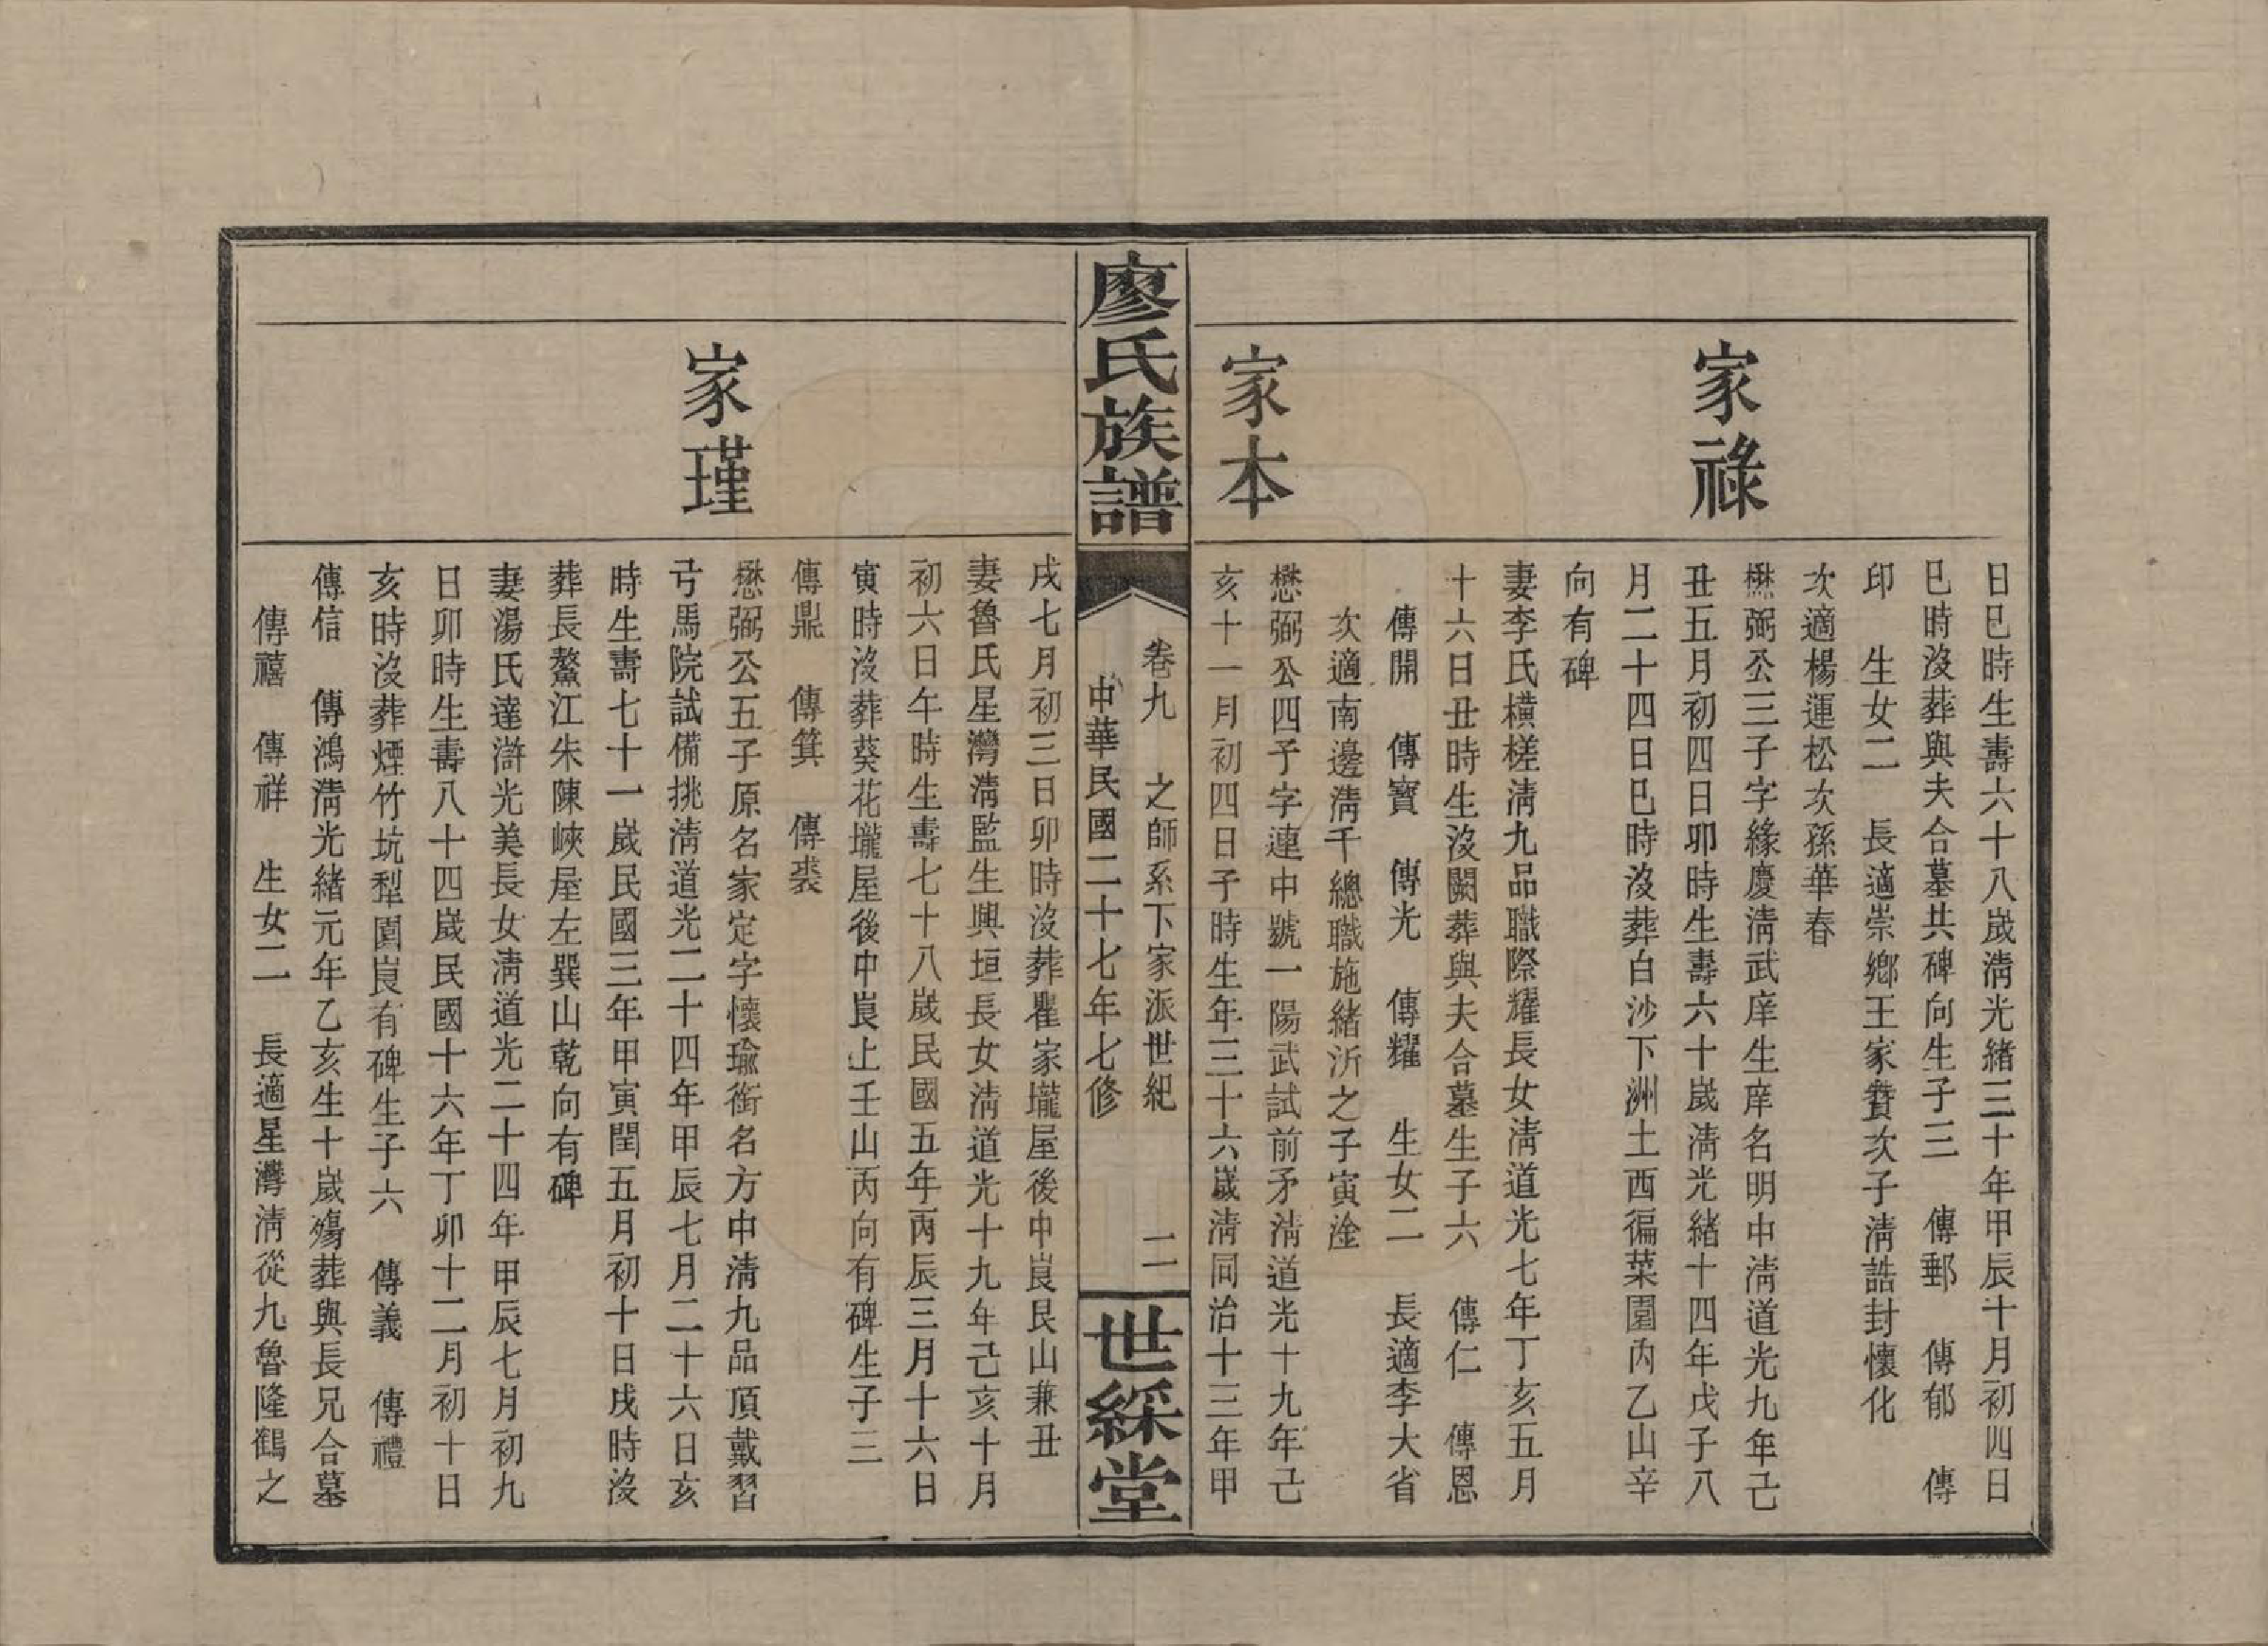 日巳時生壽六十八歲淸光緖三十年甲辰十月初四日
巳時沒葬與夫合墓共碑向生子三　傳郵　傳郁　傳
印　生女二　長適崇鄉王家賛次子淸誥封懷化
次適楊運松次孫華春
家祿
懋弼公三子字緣慶淸武庠生庠名明中淸道光九年己
丑五月初四日卯時生壽六十歲淸光緖十四年戊子八
月二十四日巳時沒葬白沙下洲土西徧菜園內乙山辛
向有碑
妻李氏橫槎淸九品職際耀長女淸道光七年丁亥五月
十六日丑時生沒闕葬與夫合墓生子六　傳仁　傳恩
傳開　傳寶　傳光　傳耀　生女二　長適李大省
次適南邊淸千總職施緖沂之子寅淦
家本
懋弼公四子字連中號一陽武試前矛淸道光十九年己
亥十一月初四日子時生年三十六歲淸同治十三年甲
廖氏族譜
卷九　之師系下家派世紀　二
中華民國二十七年七修
世綵堂
戌七月初三日卯時沒葬瞿家壠屋後中崀艮山兼丑
妻魯氏星灣淸監生興垣長女淸道光十九年己亥十月
初六日午時生壽七十八歲民國五年丙辰三月十六日
寅時沒葬葵花壠屋後中崀上壬山丙向有碑生子三
傳鼎　傳箕　傳裘
家瑾
懋弼公五子原名家定字懷瑜銜名方中淸九品頂戴習
弓馬院試備挑淸道光二十四年甲辰七月二十六日亥
時生壽七十一歲民國三年甲寅閏五月初十日戌時沒
葬長鰲江朱陳峽屋左巽山乾向有碑
妻湯氏達滸光美長女淸道光二十四年甲辰七月初九
日卯時生壽八十四歲民國十六年丁卯十二月初十日
亥時沒葬煙竹坑犁園崀有碑生子六　傳義　傳禮
傳信　傳鴻淸光緖元年乙亥生十歲殤葬與長兄合墓
傳禧　傳祥　生女二　長適星灣淸從九魯隆鶴之